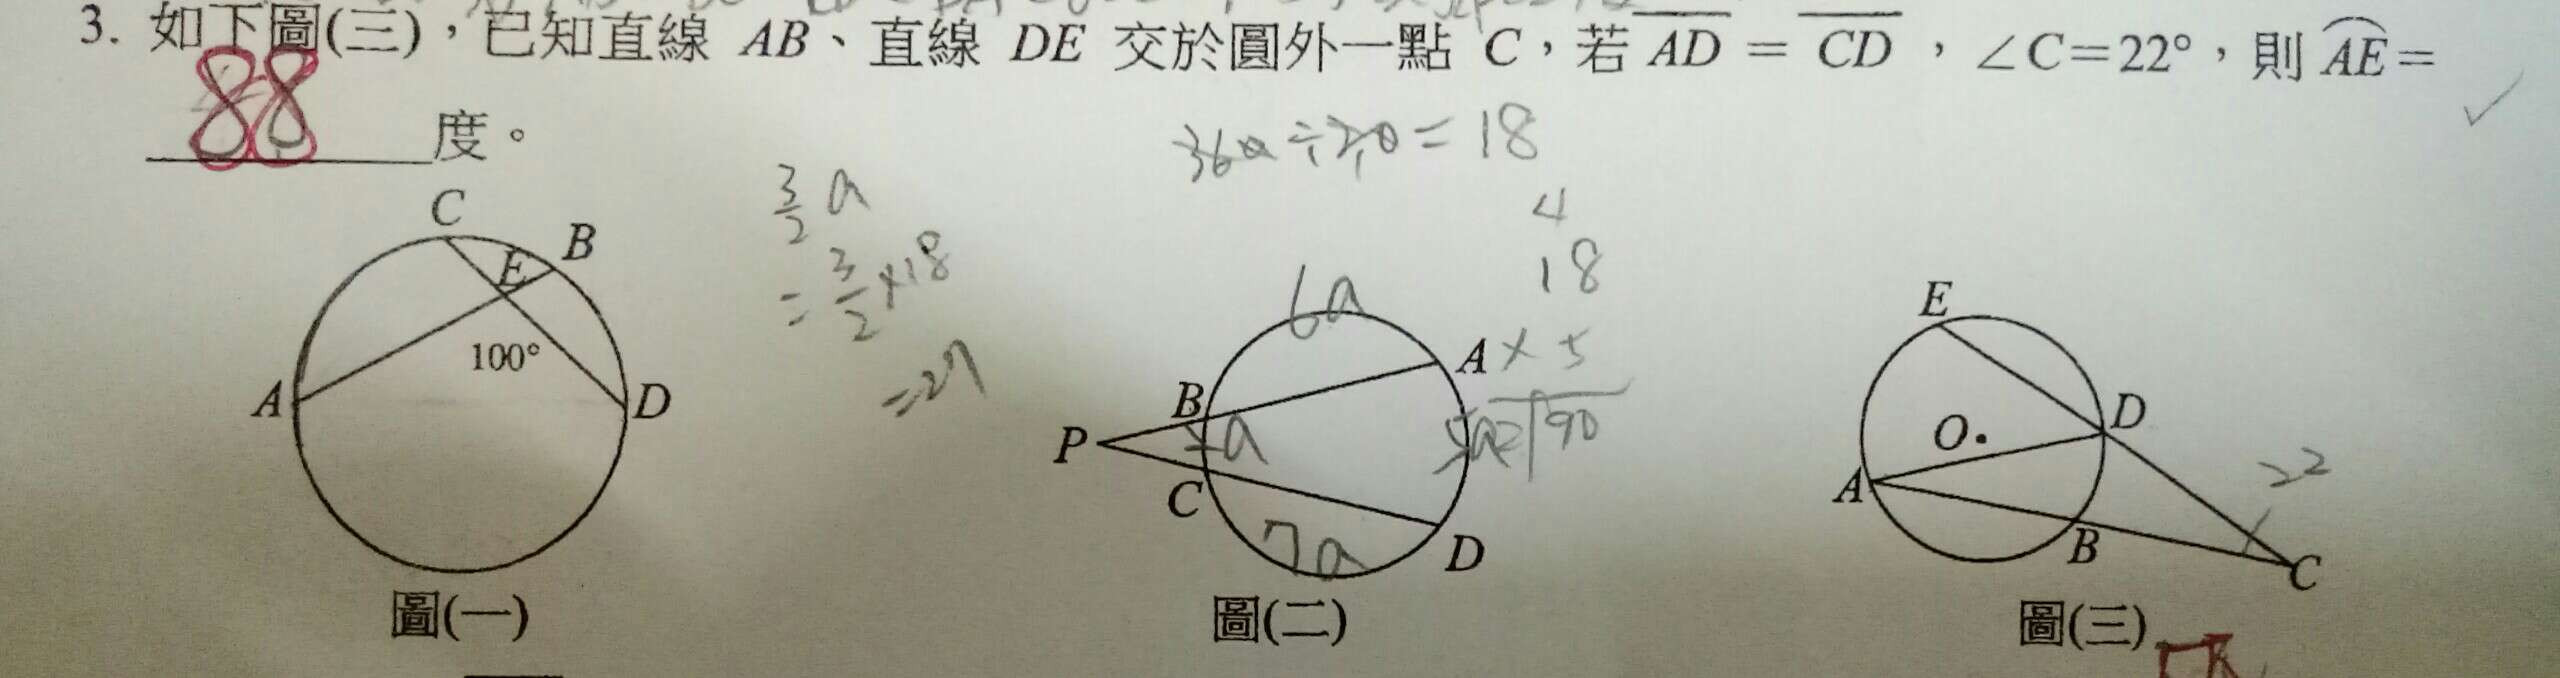 3. 如下圖(三)，已知直線 AB、直線 DE 交於圓外一點 C，若 AD = CD，∠C=22°，則 AE=
88 度。
360÷20=18
3/2 a
= 3/2 ×18
=27
4
18
× 5
2 90
C
B
E
100°
A
D
圖(一)
6a
A
B
P
2a
5a
C
7a
D
圖(二)
E
D
O
A
22
B
C
圖(三)